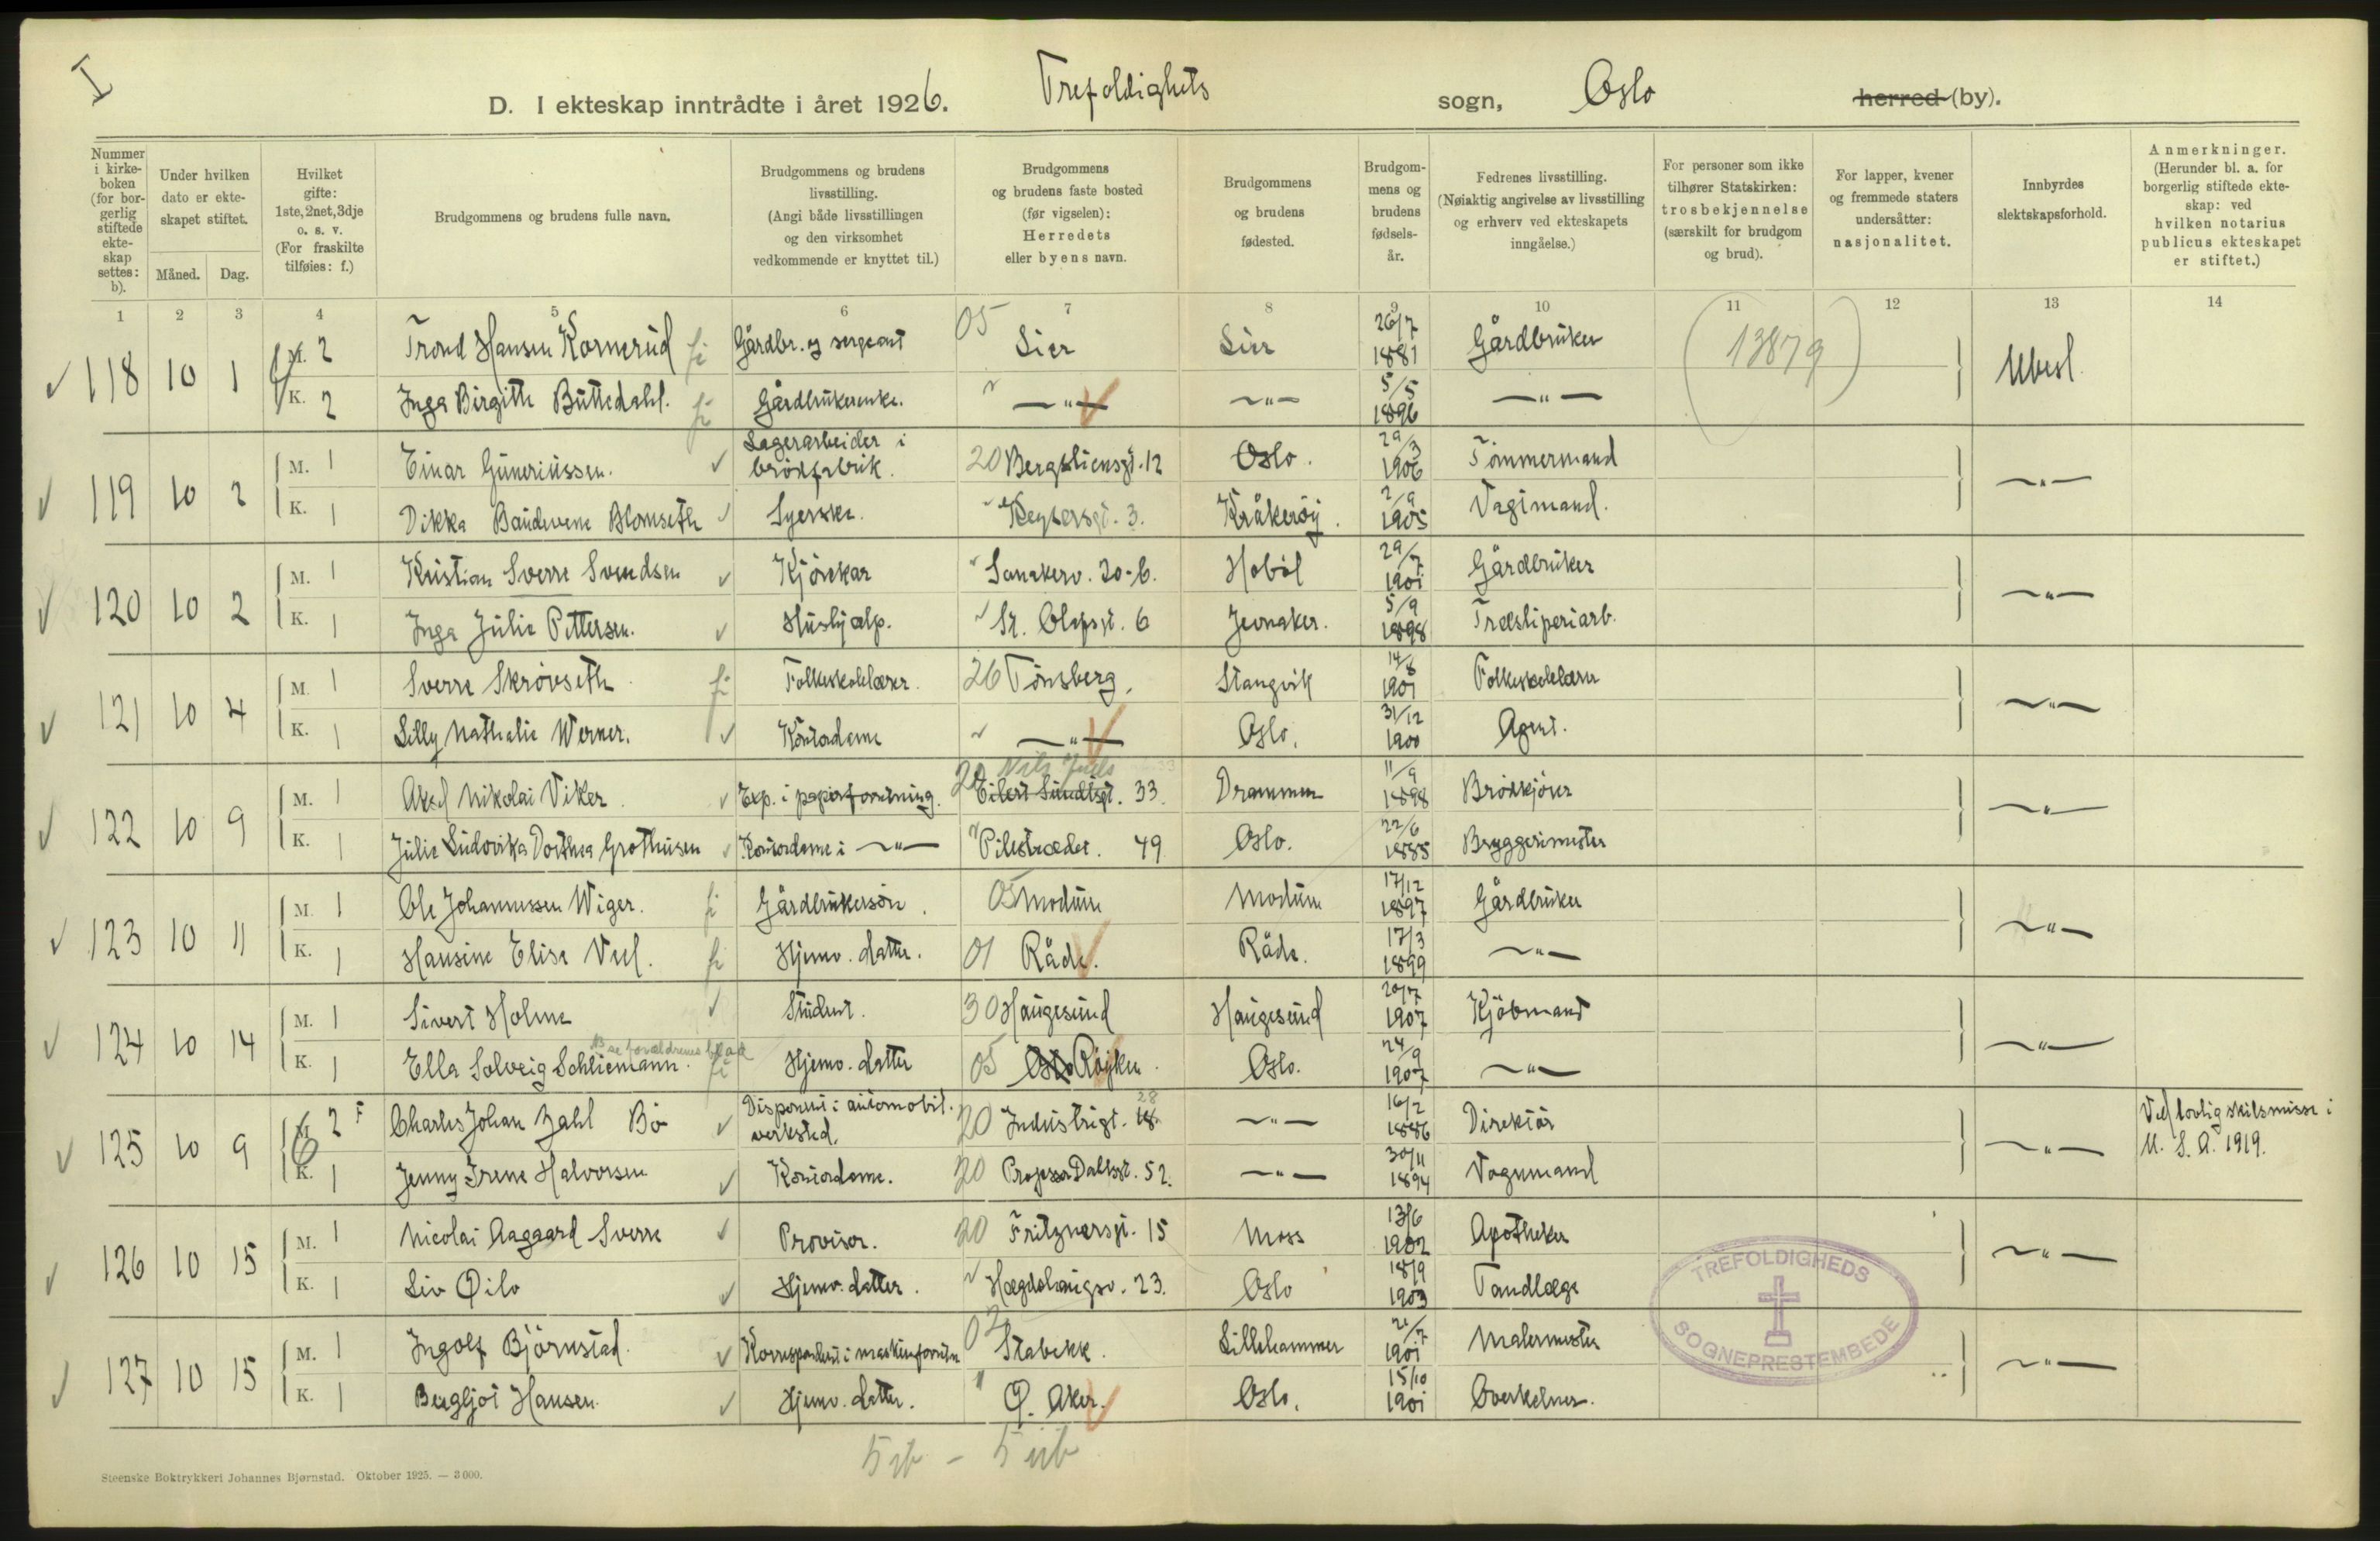 I
D. I ekteskap inntrådte i året 1926. Trefoldighets sogn, Oslo herred (by).
Nummer i kirkeboken (for borgerlig stiftede ekteskap settes: b).
Under hvilken dato er ekteskapet stiftet. Måned. Dag.
Hvilket gifte: 1ste, 2net, 3dje o. s. v. (For fraskilte tilføies: f.)
Brudgommens og brudens fulle navn.
Brudgommens og brudens livsstilling. (Angi både livsstillingen og den virksomhet vedkommende er knyttet til.)
Brudgommens og brudens faste bosted (før vigselen): Herredets eller byens navn.
Brudgommens og brudens fødested.
Brudgommens og brudens fødselsår.
Fedrenes livsstilling. (Nøiaktig angivelse av livsstilling og erhverv ved ekteskapets inngåelse.)
For personer som ikke tilhører Statskirken: trosbekjennelse (særskilt for brudgom og brud).
For lapper, kvener og fremmede staters undersåtter: nasjonalitet.
Innbyrdes slektskapsforhold.
Anmerkninger. (Herunder bl. a. for borgerlig stiftede ekteskap: ved hvilken notarius publicus ekteskapet er stiftet.)
1 2 3 4 5 6 7 8 9 10 11 12 13 14
118 10 1 M. 2 Trond Hansen Kornerud fi Gårdbr. og sergeant 05 Lier Lier 26/7 1881 Gårdbruker (13879) Ubesl.
K. 2 Inga Birgitte Buttedahl. fi Gårdbrukerenke. —"— —"— 5/5 1896 —"—
119 10 2 M. 1 Einar Guneriussen. Lagerarbeider i brødfabrik. 20 Bergsliensgt. 12 Oslo. 29/3 1906 Tömmermand —"—
K. 1 Dikka Baudwene Blomseth Syerske. Keysersgt. 3. Kråkeröy. 2/9 1905 Vagtmand.
120 10 2 M. 1 Kristian Sverre Svendsen Kjörekar Sanakerv. 20-b. Hobøl 29/7 1901 Gårdbruker —"—
K. 1 Inga Julie Pettersen. Hushjælp. St. Olafsgt. 6 Jevnaker. 5/9 1898 Træsliperiarb.
121 10 4 M. 1 Sverre Skrövseth fi Folkeskolelærer. 26 Tönsberg. Stangvik 14/8 1901 Folkeskolelærer —"—
K. 1 Lilly Nathalie Werner. Kontordame —"— Oslo. 31/12 1900 Agent.
122 10 9 M. 1 Aksel Nikolai Viker Exp. i papirforretning. 20 Nils Juels Eilert Sundtsgt. 33. Drammen 11/9 1898 Brödkjörer —"—
K. 1 Julie Ludovika Dorthea Grothusen Kontordame i —"— Pilestrædet. 49 Oslo. 22/6 1885 Bryggerimester
123 10 11 M. 1 Ole Johannessen Wiger. fi Gårdbrukersön. 05 Modum Modum 17/12 1897 Gårdbruker —"—
K. 1 Hansine Elise Veel. fi Hjemv. datter. 01 Råde. Råde. 17/3 1899 —"—
124 10 14 M. 1 Sivert Holme Student. 30 Haugesund Haugesund 20/7 1907 Kjöbmand —"—
K. 1 Ella Solveig Schliemann. fi Hjemv. datter 05 Oslo Röyken. Oslo. 24/9 1907 —"—
125 10 9 M. 2 F Charles Johan Zahl Bö Disponent i automobil. verksted. 20 Industrigt. 18 28 —"— 16/2 1886 Direktör —"— Ved lovlig skilsmisse i U. S. A. 1919.
K. 1 Jenny Irene Halvorsen Kontordame. 20 Professor Dahlsgt. 52. —"— 30/11 1894 Vognmand
126 10 15 M. 1 Nicolai Aagaard Sverre Provisor. 20 Fritznersgt. 15 Moss 13/6 1902 Apotheker —"—
K. 1 Liv Qilo Hjemv. datter. Hægdehaugsv. 23. Oslo 18/9 1903 Tandlæge
127 10 15 M. 1 Ingolf Björnstad. Korrespondent i maskinforretn 02 Stabekk. Lillehammer 21/7 1901 Malermester —"—
K. 1 Bergljot Hansen. Hjemv. datter. Ö. Aker. Oslo. 15/10 1901 Overkelner.
TREFOLDIGHEDS SOGNEPRESTEMBEDE
5 ib - 5 uib
Steenske Boktrykkeri Johannes Bjørnstad. Oktober 1925. — 3000.